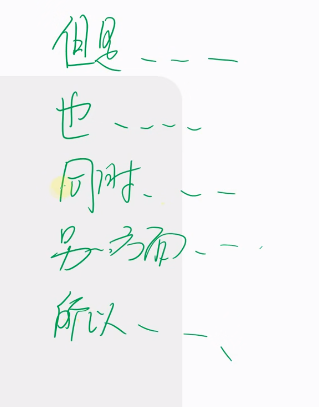 但是 - - -
也 - - - -
同时 - - -
另一方面 - - -
所以 - - -